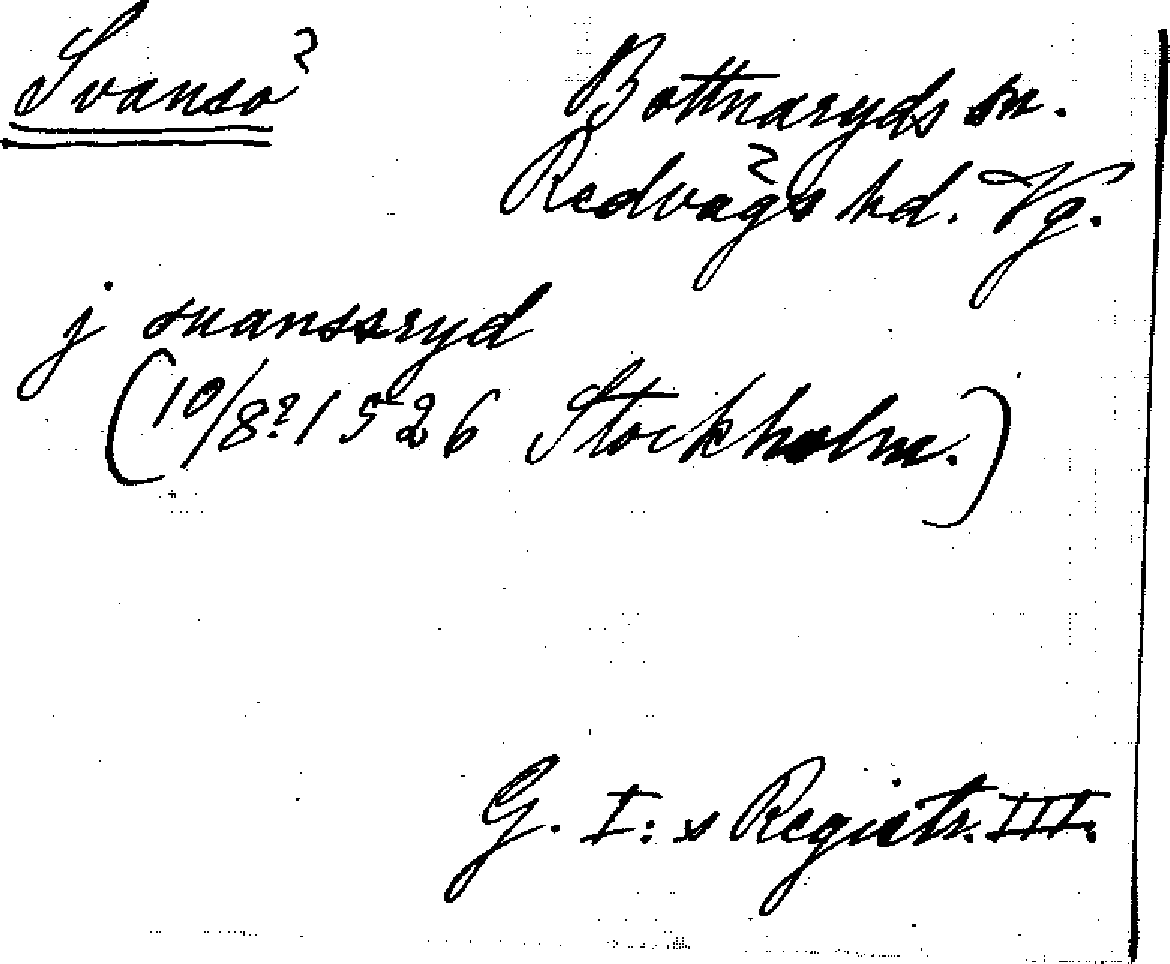 Svansö
Bottnaryds sn.
Redvägs hd. Vg.
j suanssryd
(10/8? 1526 Stockholm.)
G. I:s Registr. III.